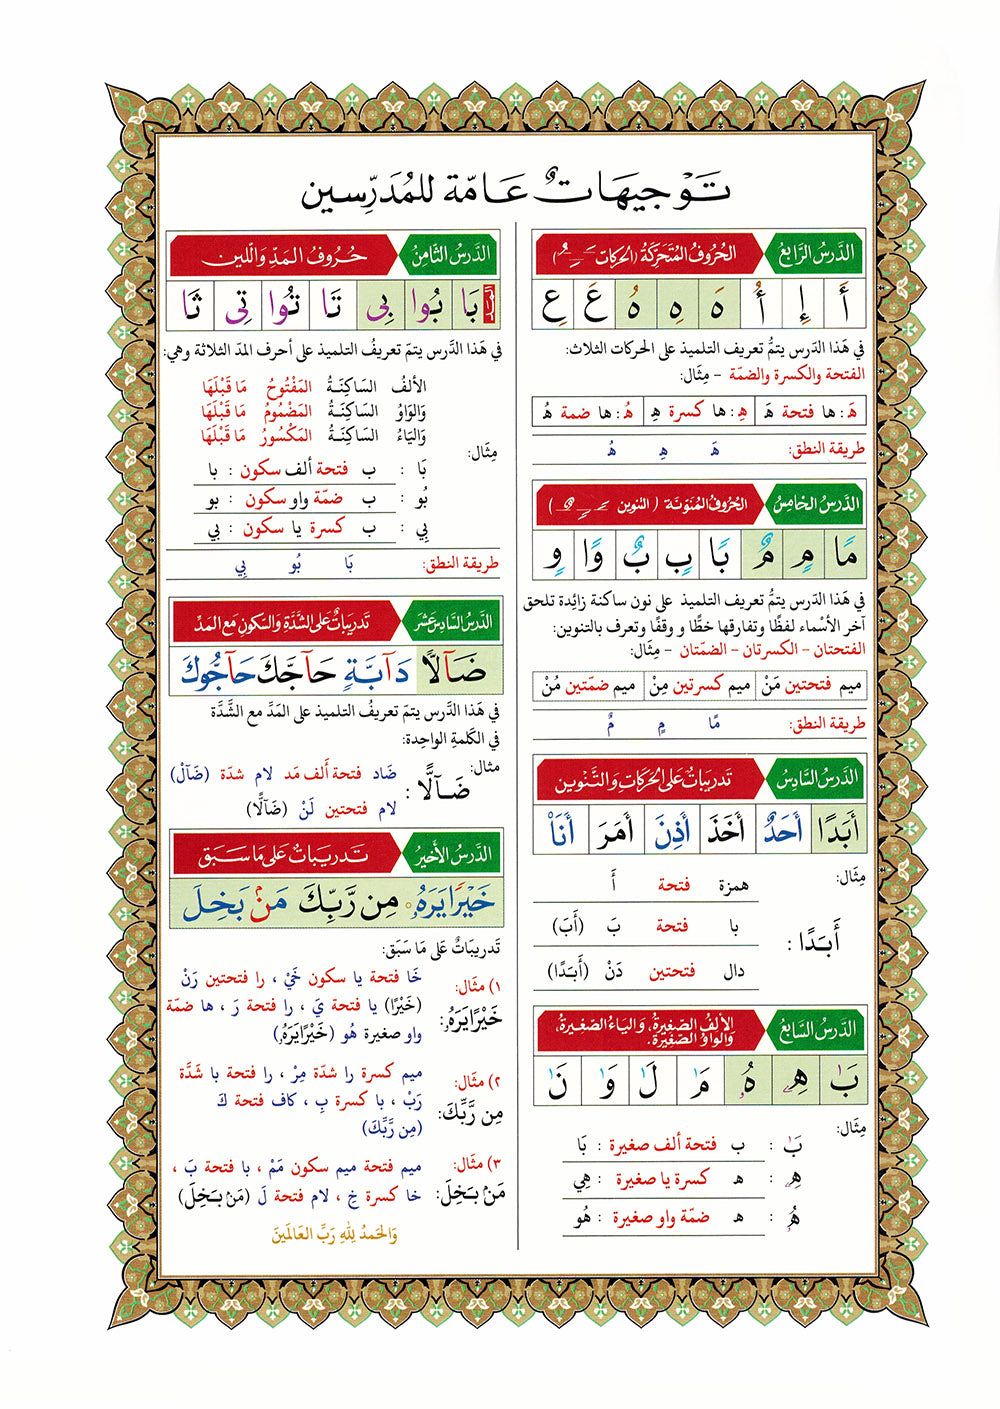 تَوْجِيهَاتٌ عَامّة للمُدَرِّسين
الدَّرسُ الرَّابعُ
الحُرُوفُ المُتَحَرِّكَةُ (الحَركات ـَـِـُ)
أَ إِ أُ هَ هِ هُ عَ عِ
في هَذا الدّرس يتمُّ تعريف التلميذ على الحركات الثلاث:
الفتحة والكسرة والضمّة - مِثَال:
هَ: ها فتحة هَ هِ: ها كسرة هِ هُ: ها ضمة هُ
طريقة النطق: هَ هِ هُ
الدَّرسُ الخامِسُ
الحُرُوفُ المُنَوّنَة (التنوين ـًـٍـٌ)
مًا مٍ مٌ بًا بٍ بٌ وًا وٍ
في هَذا الدّرس يتمُّ تعريف التلميذ على نون ساكنة زائِدة تلحق
آخر الأسْماء لفظًا وتفارقها خطًّا و وقفًا وتعرف بالتنوين:
الفتحتان - الكسرتان - الضمّتان - مِثَال:
ميم فتحتين مَنْ ميم كسرتين مِنْ ميم ضمّتين مُنْ
طريقة النطق: مًا مٍ مٌ
الدَّرسُ السَّادِسُ
تَدرِيبَاتٌ عَلى الحَرَكَاتِ وَالتَّنْوِين
أَبَدًا أَحَدٌ أَخَذَ أَذِنَ أَمَرَ أَنَا۠
مِثَال:
أَبَدًا :
همزة فتحة أَ
با فتحة بَ (أَبَ)
دال فتحتين دَنْ (أَبَدًا)
الدَّرسُ السَّابِعُ
الألفُ الصَّغيرَةُ، وَاليَاءُ الصَّغيرَةُ،
وَالوَاوُ الصَّغيرَة.
بَٰ هِۦ هُۥ مَٰ لَٰ وَٰ نَٰ
مِثَال:
بَٰ : ب فتحة ألف صغيرة : بَا
هِۦ : هـ كسرة يا صغيرة : هِي
هُۥ : هـ ضمّة واو صغيرة : هُو
الدَّرسُ الثَّامِنُ
حُرُوفُ المَدِّ وَاللِّين
بَا بُوا بِى تَا تُوا تِى ثَا
في هَذا الدَّرس يتمّ تعريفُ التلميذ على أحرف المدّ الثلاثة وهي:
الألفُ السَاكِنَةُ المَفْتُوحُ مَا قَبْلَهَا
وَالوَاوُ السَاكِنَةُ المَضْمُومُ مَا قَبْلَهَا
وَاليَاءُ السَاكِنَةُ المَكْسُورُ مَا قَبْلَهَا
مِثَال:
بَا : ب فتحة ألف سكون : با
بُو : ب ضمّة واو سكون : بو
بِي : ب كسرة يا سكون : بي
طريقة النطق: بَا بُو بِي
الدَّرسُ السَّادِسَ عَشَر
تَدرِيبَاتٌ عَلى الشَّدَّةِ وَالسّكونِ مَع المَدّ
ضَآلًّا دَآبَّةٍ حَآجَّكَ حَآجُّوكَ
في هَذا الدَّرس يتمّ تعريفُ التلميذ على المَدِّ مع الشَّدَّة
في الكَلمةِ الواحِدة:
مثال:
ضَـآلًّا :
ضَاد فتحة أَلف مَد لام شدّة (ضَآلْ)
لام فتحتين لَنْ (ضَآلًّا)
الدَّرسُ الأَخيرُ
تَدرِيبَاتٌ عَلى مَا سَبَق
خَيْرًايَرَهُۥ مِن رَّبِّكَ مَنۢ بَخِلَ
تَدريبَاتٌ عَلى مَا سَبَق:
١) مثَال:
خَيْرًايَرَهُۥ:
خَا فتحة يا سكون خَيْ ، را فتحتين رَنْ
(خَيْرًا) يا فتحة يَ ، را فتحة رَ ، ها ضمّة
واو صغيرة هُو (خَيْرًايَرَهُۥ)
٢) مثَال:
مِن رَّبِّكَ:
ميم كسرة را شدّة مِرْ ، را فتحة با شَدَّة
رَبْ ، با كسرة بِ ، كاف فتحة كَ
(مِن رَّبِّكَ)
٣) مثَال:
مَنۢ بَخِلَ:
ميم فتحة ميم سكون مَمْ ، با فتحة بَ ،
خا كسرة خِ ، لام فتحة لَ (مَنۢ بَخِلَ)
وَالحَمدُ لِلّهِ رَبِّ العَالَمينَ